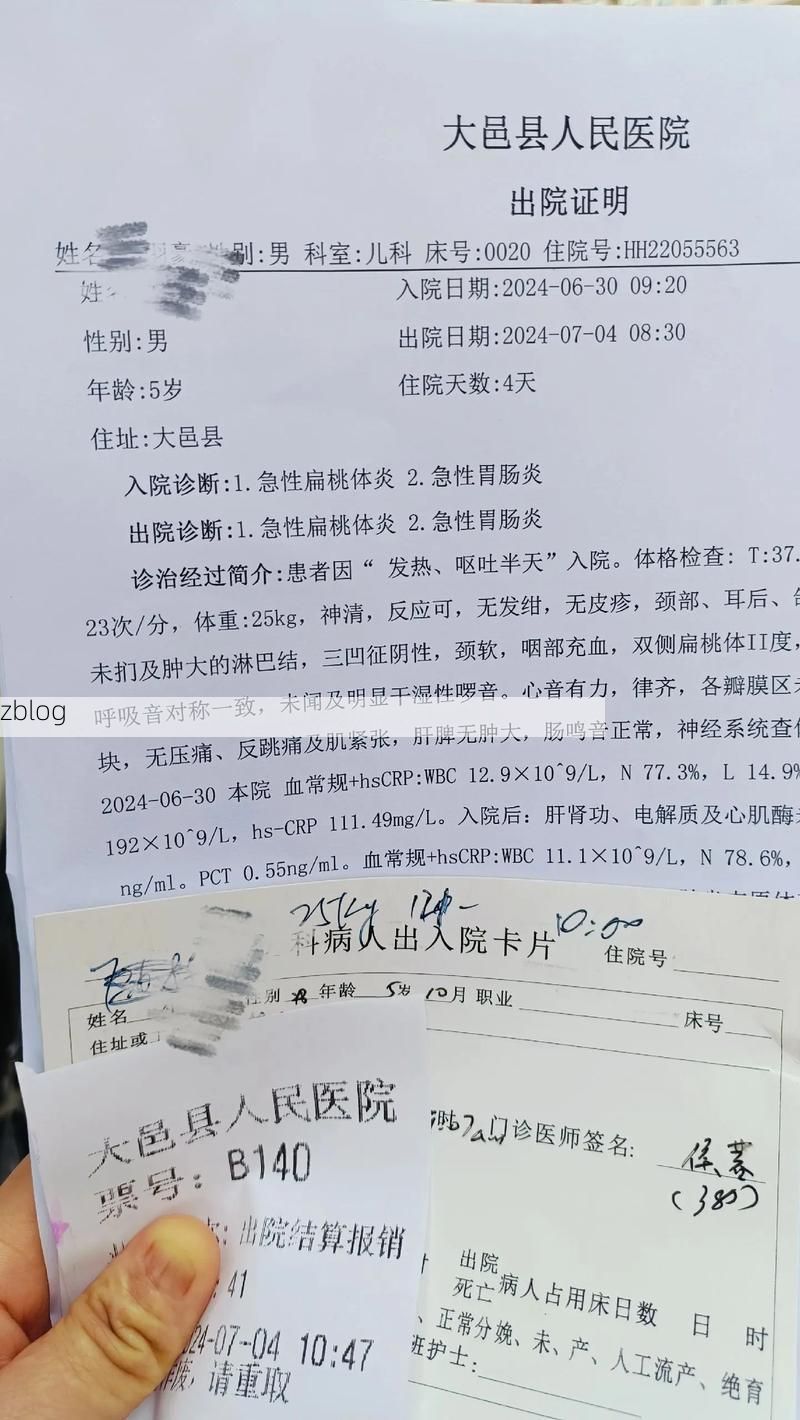 大邑县人民医院
出院证明
姓名 性别:男 科室:儿科 床号:0020 住院号:HH22055563
姓 入院日期:2024-06-30 09:20
性别:男 出院日期:2024-07-04 08:30
年龄:5岁 住院天数:4天
住址:大邑县
入院诊断:1.急性扁桃体炎 2.急性胃肠炎
出院诊断:1.急性扁桃体炎 2.急性胃肠炎
诊治经过简介:患者因“ 发热、呕吐半天”入院。体格检查: T:37.
23次/分, 体重:25kg, 神清, 反应可, 无发绀, 无皮疹, 颈部、耳后、
未扪及肿大的淋巴结, 三凹征阴性, 颈软, 咽部充血, 双侧扁桃体II度,
呼吸音对称一致, 未闻及明显干湿性啰音。心音有力, 律齐, 各瓣膜区
zblog
块, 无压痛、反跳痛及肌紧张, 肝脾无肿大, 肠鸣音正常, 神经系统查
2024-06-30 本院 血常规+hsCRP:WBC 12.9×10^9/L, N 77.3%, L 14.9%
192×10^9/L, hs-CRP 111.49mg/L。入院后: 肝肾功、电解质及心肌酶
ng/ml。PCT 0.55ng/ml。血常规+hsCRP:WBC 11.1×10^9/L, N 78.6%,
25kg 10:00
科病人出入院卡片 住院号
姓名 性别 男 年龄 5岁 10月 职业 床号
住址或
门诊医师签名:
(380)
大邑县人民医院
票号: B140
: 出院结算报销
: 41
24-07-04 10:47
, 请重取
出院
死亡 病人占用床日数 日 时
、正常分娩、未、产、人工流产、绝育
班护士: